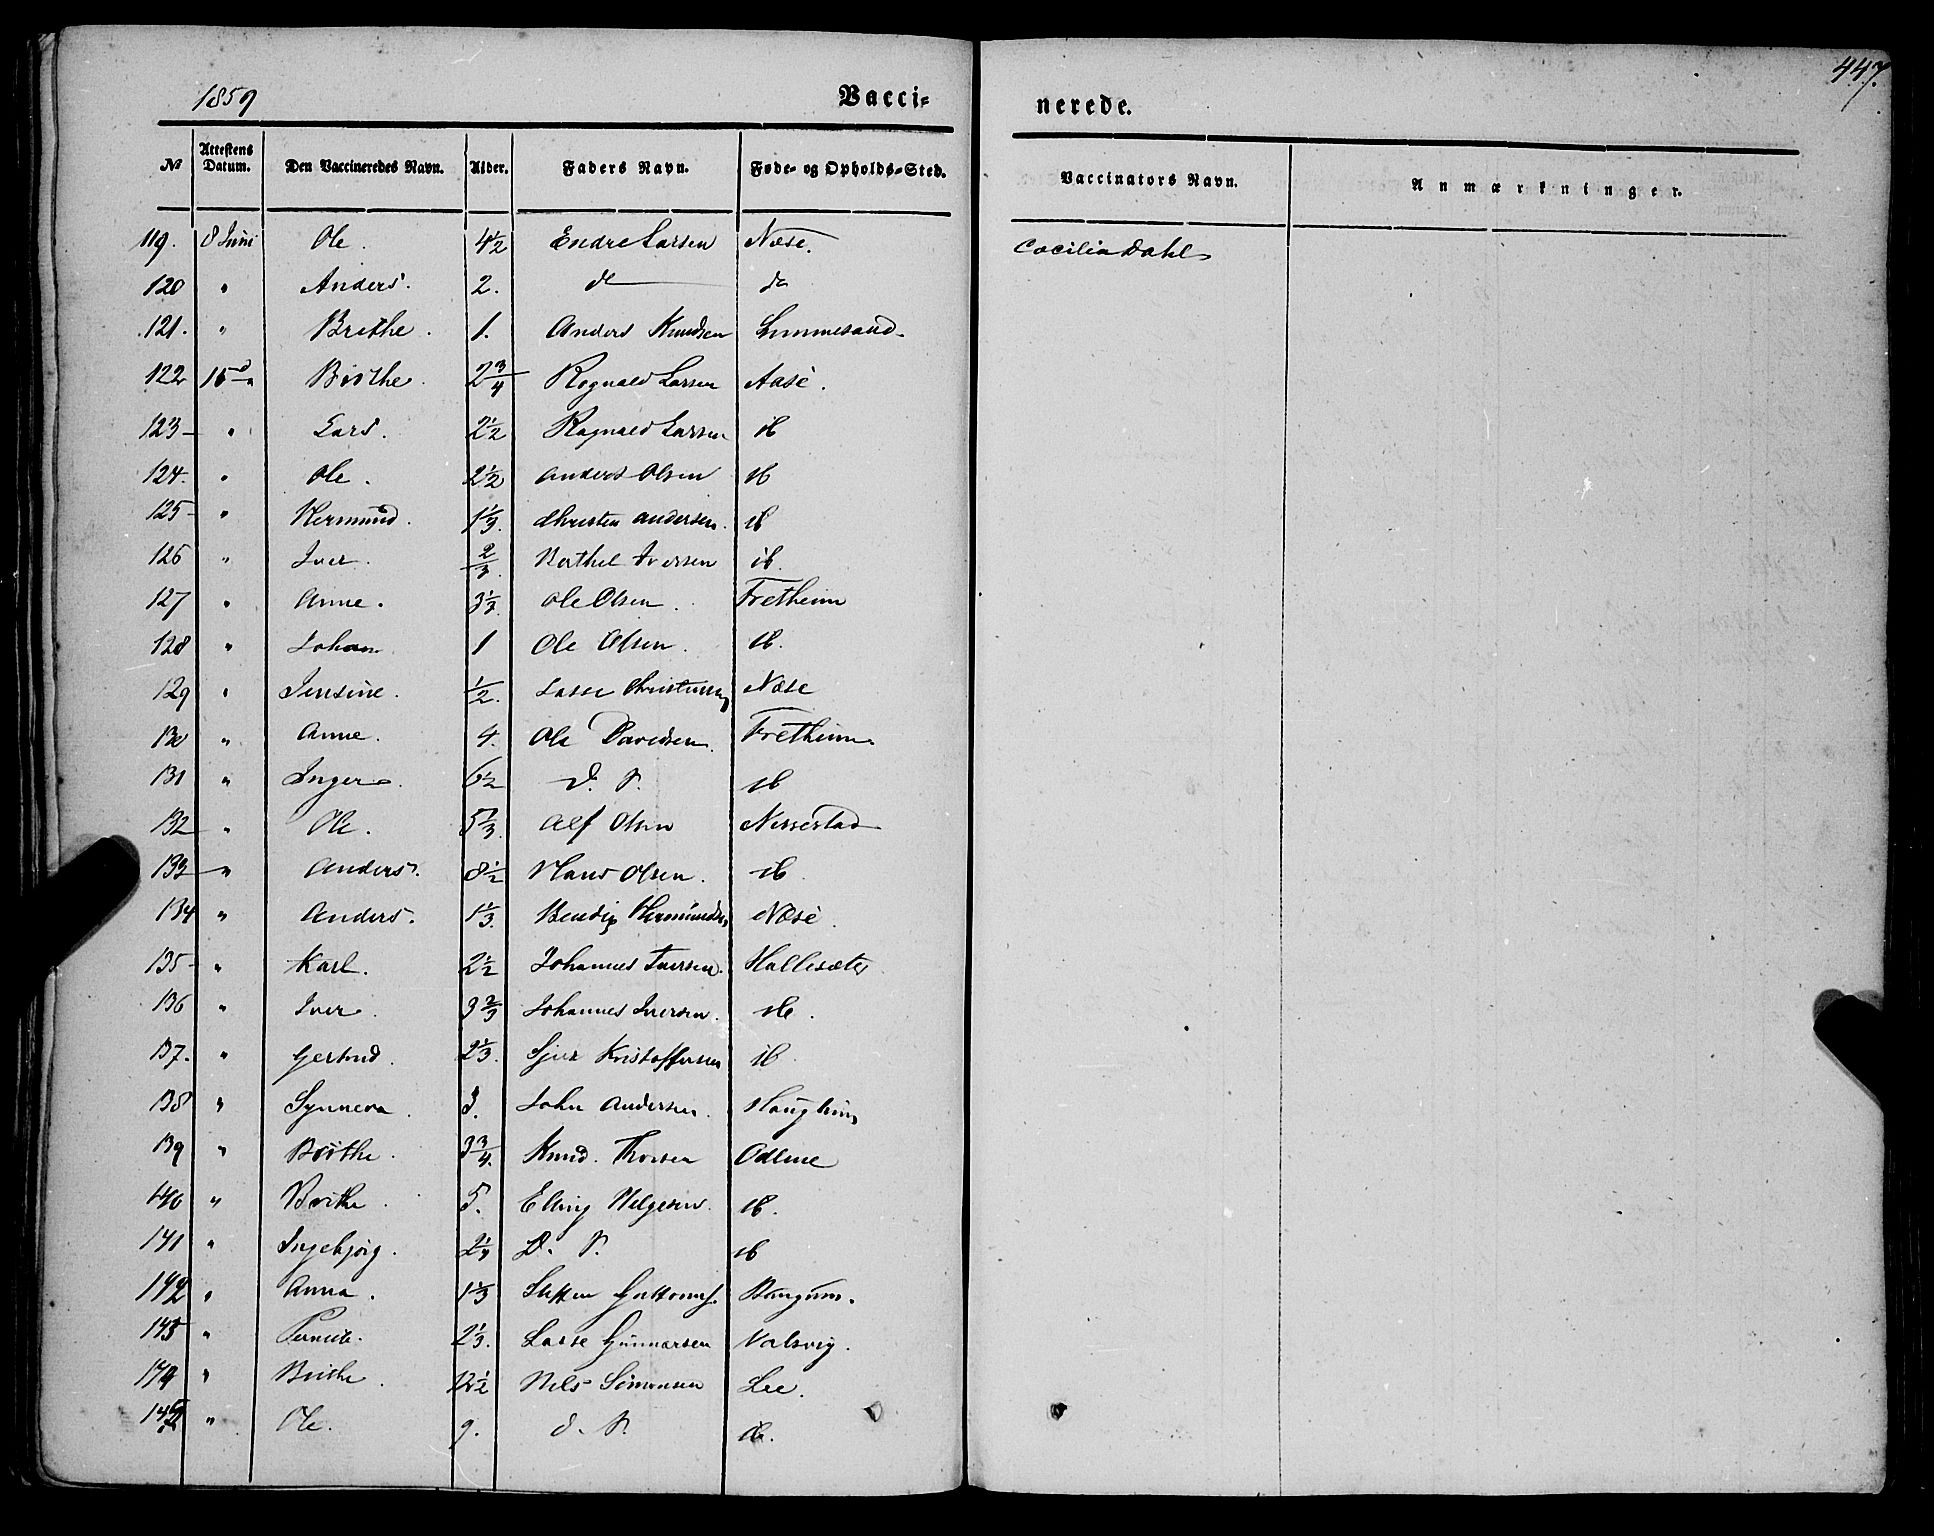 1859 Vacci- nerede. 447.
No Attestens Datum. Den Vaccineredes Navn. Alder. Faders Navn. Føde- og Opholds-Sted. Vaccinators Navn. Anmærkninger.
119. 8 Juni Ole. 4½ Endre Larsen Næse. Cæcilia Dahl
120 " Anders. 2. do do
121. " Brithe. 1. Anders Knudsen
122 15 " Brithe. 2¾ Rognald Larsen Aase.
123 " Lars. 2½ Rognald Larsen ib
124. " Ole. 2½ Anders Olsen ib
125 " Hermund. 1⅓. Christen Andersen. ib
126 " Iver. ⅔. Berthel Iversen ib.
127 " Anne. 3⅓. Ole Olsen. Fretheim
128 " Johan 1 Ole Olsen. ib.
129 " Jensine. ½. Lasse Næse
130 " Anne. 4. Ole Davidsen. Fretheim.
131 " Inger. 6½ D. S. ib
132 " Ole. 5⅓. Alf Olsen Nessestad
133 " Anders. 8½ Hans Olsen. ib.
134 " Anders. 1⅓. Bendix Hermunds. Næse.
135 " Karl. 2½ Johannes Iversen. Hallesæter
136 " Iver. 3⅔ Johannes Iversen. ib.
137. " Gertrud. 2⅓. Sjur Kristoffersen ib.
138 " Synneva. 3. John Andersen.
139 " Brithe. 3¾. Knud. Thorsen
140 " Brithe. 5. Elling Helgesen. ib.
141 " Ingebjørg. D. S. ib
142 " Anna. 1⅓ Steffen Guttorms.
143 " 2⅓. Lasse Gunnarsen Valsvig.
144 " Brithe. 12½ Nels Simonsen Lee.
145 " Ole. 9. d. S. ib.